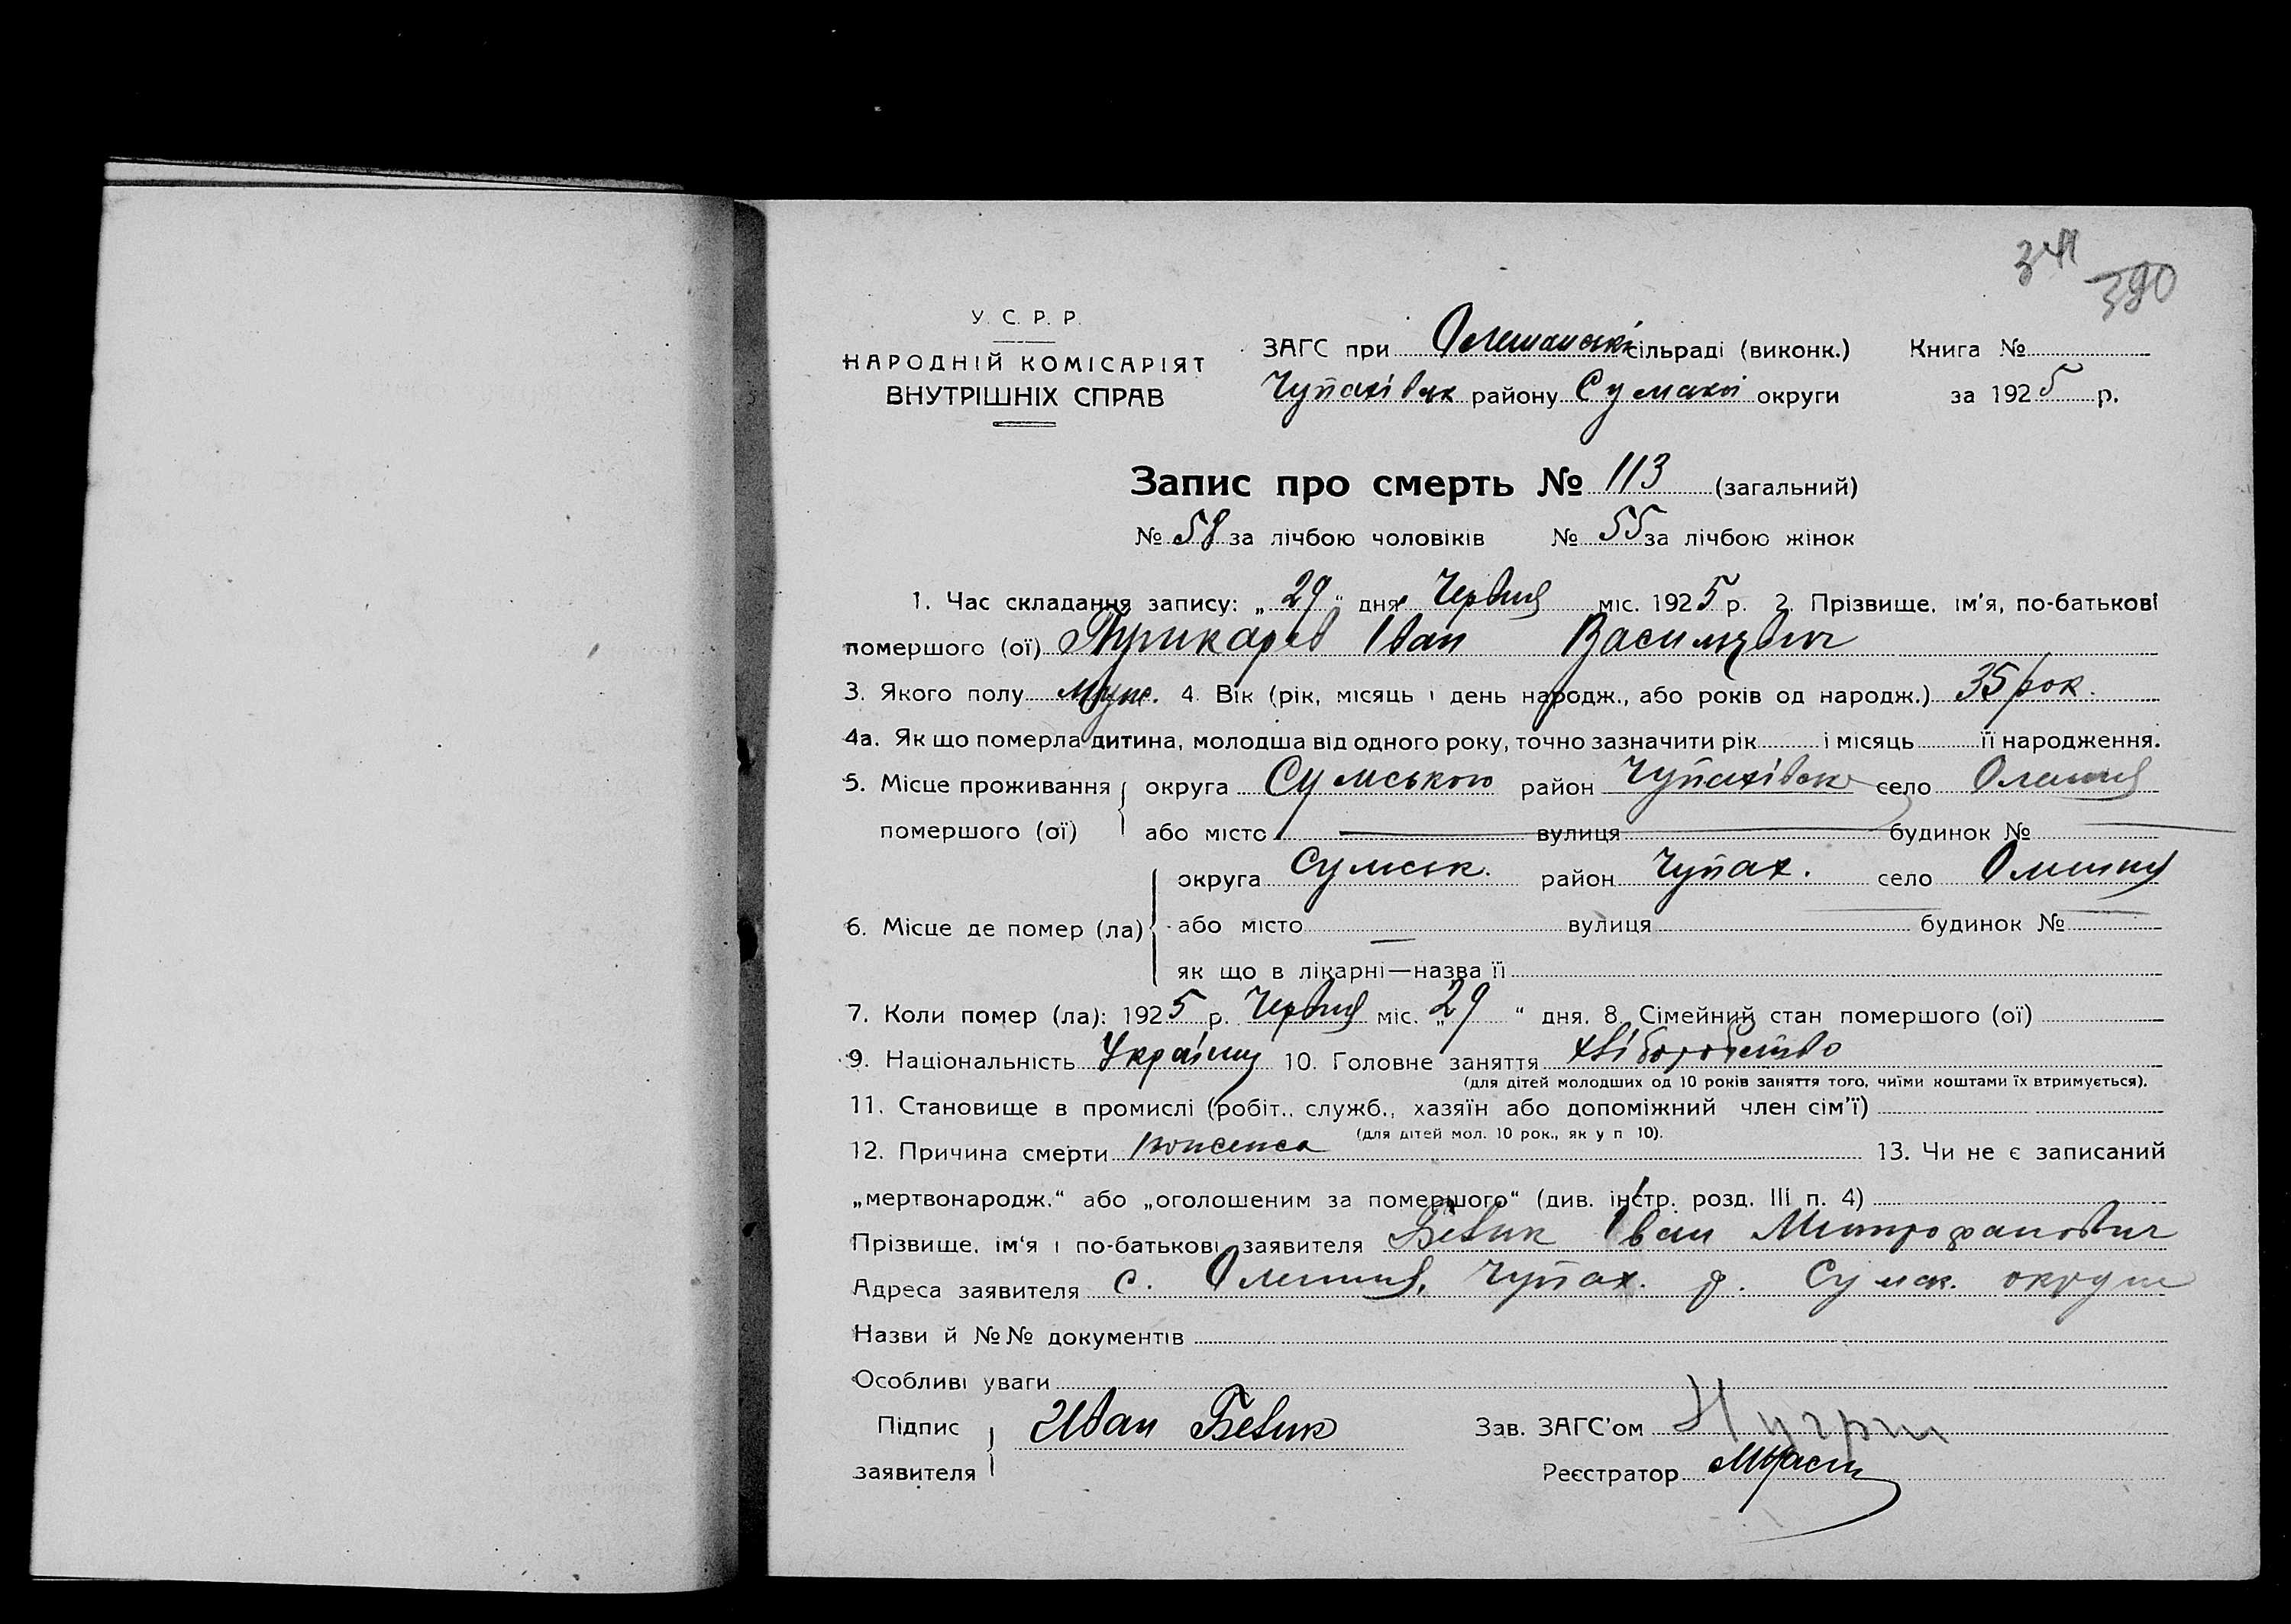 341
390
У. С. Р. Р.
НАРОДНІЙ КОМІСАРІЯТ
ВНУТРІШНІХ СПРАВ
ЗАГС при Олешанській сільраді (виконк.) Книга №
Чупахівськ району Сумської округи за 1925 р.
Запис про смерть № 113 (загальний)
№ 58 за лічбою чоловіків № 55 за лічбою жінок
1. Час складання запису: „ 29 " дня Червня міс. 1925 р. 2. Прізвище, ім'я, по-батькові
помершого (ої) Іван Васильевич
3. Якого полу муж. 4. Вік (рік, місяць і день народж., або років од народж.) 35 рок.
4а. Як що померла дитина, молодша від одного року, точно зазначити рік і місяць її народження.
5. Місце проживання округа Сумською район Чупахівськ село Олешня
помершого (ої) або місто вулиця будинок №
округа Сумськ. район Чупах. село Олешня
6. Місце де помер (ла) або місто вулиця будинок №
як що в лікарні—назва її
7. Коли помер (ла): 1925 р. Червня міс. „ 29 " дня. 8. Сімейний стан помершого (ої)
9. Національність 10. Головне заняття хліборобство
(для дітей молодших од 10 років заняття того, чиїми коштами їх втримується).
11. Становище в промислі (робіт., служб., хазяїн або допоміжний член сім'ї)
(для дітей мол. 10 рок., як у п 10).
12. Причина смерти 13. Чи не є записаний
„мертвонародж." або „оголошеним за помершого" (див. інстр. розд. III п. 4)
Прізвище, ім'я і по-батькові заявителя Бевик Іван Митрофанович
Адреса заявителя с. Олешня, Чупах. р. Сумск. округи
Назви й №№ документів
Особливі уваги
Підпис Иван Бевик Зав. ЗАГС'ом
заявителя Реєстратор